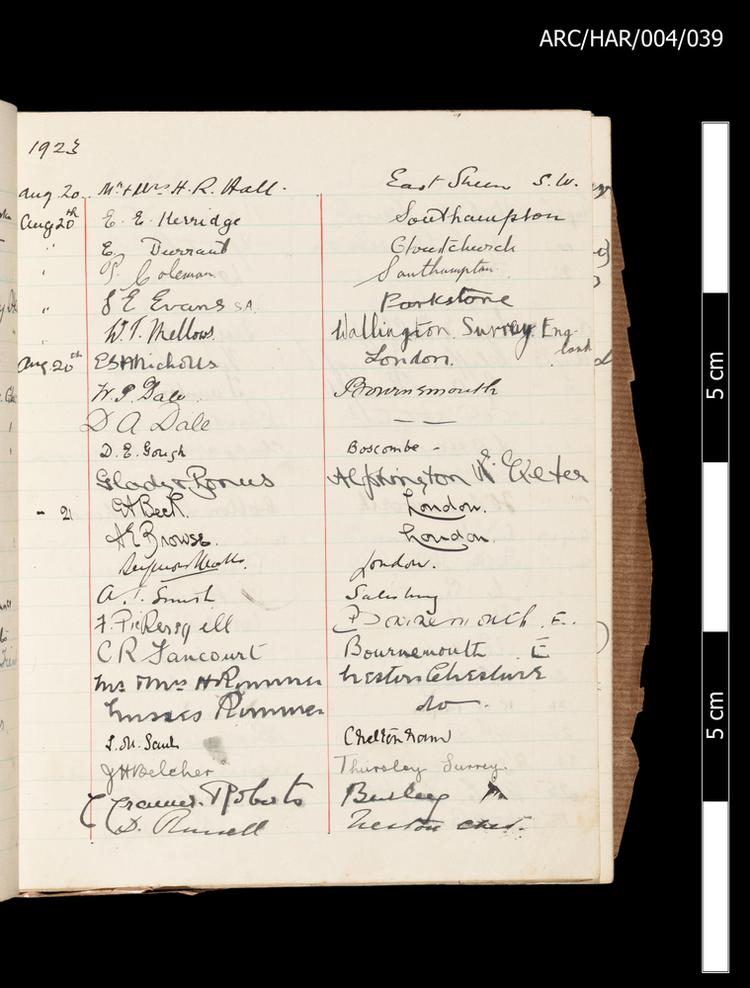 ARC/HAR/004/039
1923
Aug 20. Mr & Mrs H. R. Hall. East Sheen S.W.
Aug 20th E. E. Kerridge Southampton
" E. Durrant Christchurch
" Coleman. Southampton.
" E Evans S.A. Parkstone
W. T. Mellows. Wallington Surrey Eng-
land
Aug. 20th Nicholls London.
W. P. Dale. Bournemouth
D A Dale — —
D. E. Gough Boscombe -
Gladys Alphington Nr Exeter
- 21 Beck. London.
Browse. London.
London.
A. Smith Salisbury
F. Pickersgill Bournemouth. E.
C R Bournemouth E
Mr & Mrs H Rimmer Neston Cheshire
Misses Rimmer do
Cheltenham
J H Belcher Thursley Surrey.
Cramer-Roberts
D. Russell Neston Ches.
5 cm
5 cm